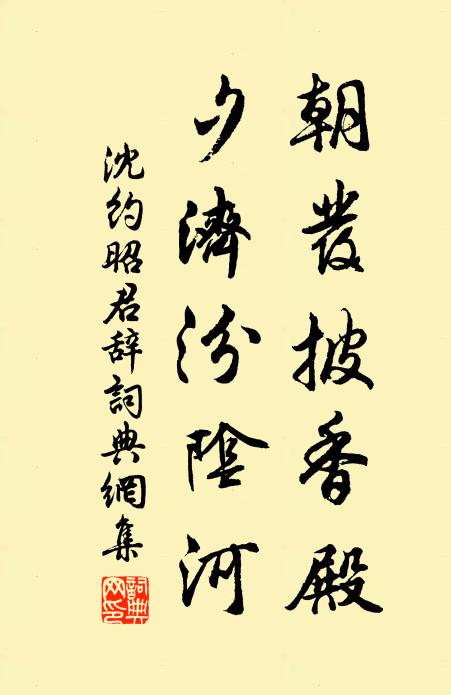 朝發披香殿
夕濟汾陰河
沈約昭君辞詞典網集
詞典网印